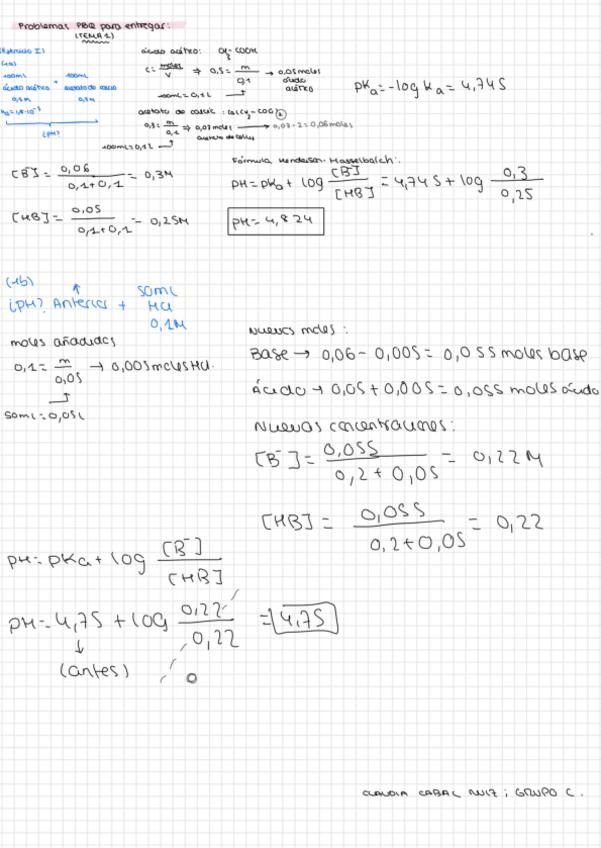 Problemas PBQ para entregar:
(TEMA 1)
(Ejercicio I)
(1a)
100mL + 100mL
ácido acético acetato de calcio
0,5M 0,3M
Ka=1,8·10⁻⁵
¿pH?
ácido acético: CH₃-COOH
C = moles/V ⇒ 0,5 = m/0,1 → 0,05 moles ácido acético
100mL = 0,1L
pKa = -log Ka = 4,745
acetato de calcio: Ca(CH₃-COO)₂
0,3 = m/0,1 ⇒ 0,03 moles acetato de calcio → 0,03·2 = 0,06 moles
100mL = 0,1L
[B⁻] = 0,06/(0,1+0,1) = 0,3M
[HB] = 0,05/(0,1+0,1) = 0,25M
Fórmula Henderson-Hasselbalch:
pH = pKa + log [B⁻]/[HB] = 4,745 + log 0,3/0,25
pH = 4,824
(1b)
¿pH? Anterior + 50mL HCl 0,1M
moles añadidos
0,1 = m/0,05 → 0,005 moles HCl.
50mL = 0,05L
Nuevos moles:
Base → 0,06 - 0,005 = 0,055 moles base
Ácido → 0,05 + 0,005 = 0,055 moles ácido
Nuevas concentraciones:
[B⁻] = 0,055/(0,2+0,05) = 0,22M
[HB] = 0,055/(0,2+0,05) = 0,22
pH = pKa + log [B⁻]/[HB]
pH = 4,75 + log 0,22/0,22 = 4,75
(antes) 0
CLAUDIA CABAL RUIZ; GRUPO C.